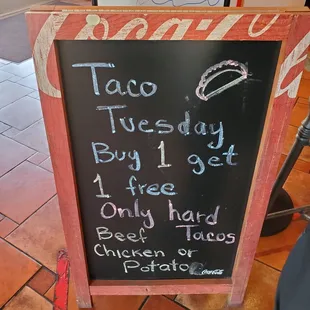 Coca-Cola
Taco
Tuesday
Buy 1 get
1 free
Only hard
Beef Tacos
Chicken or
Potato
Coca-Cola